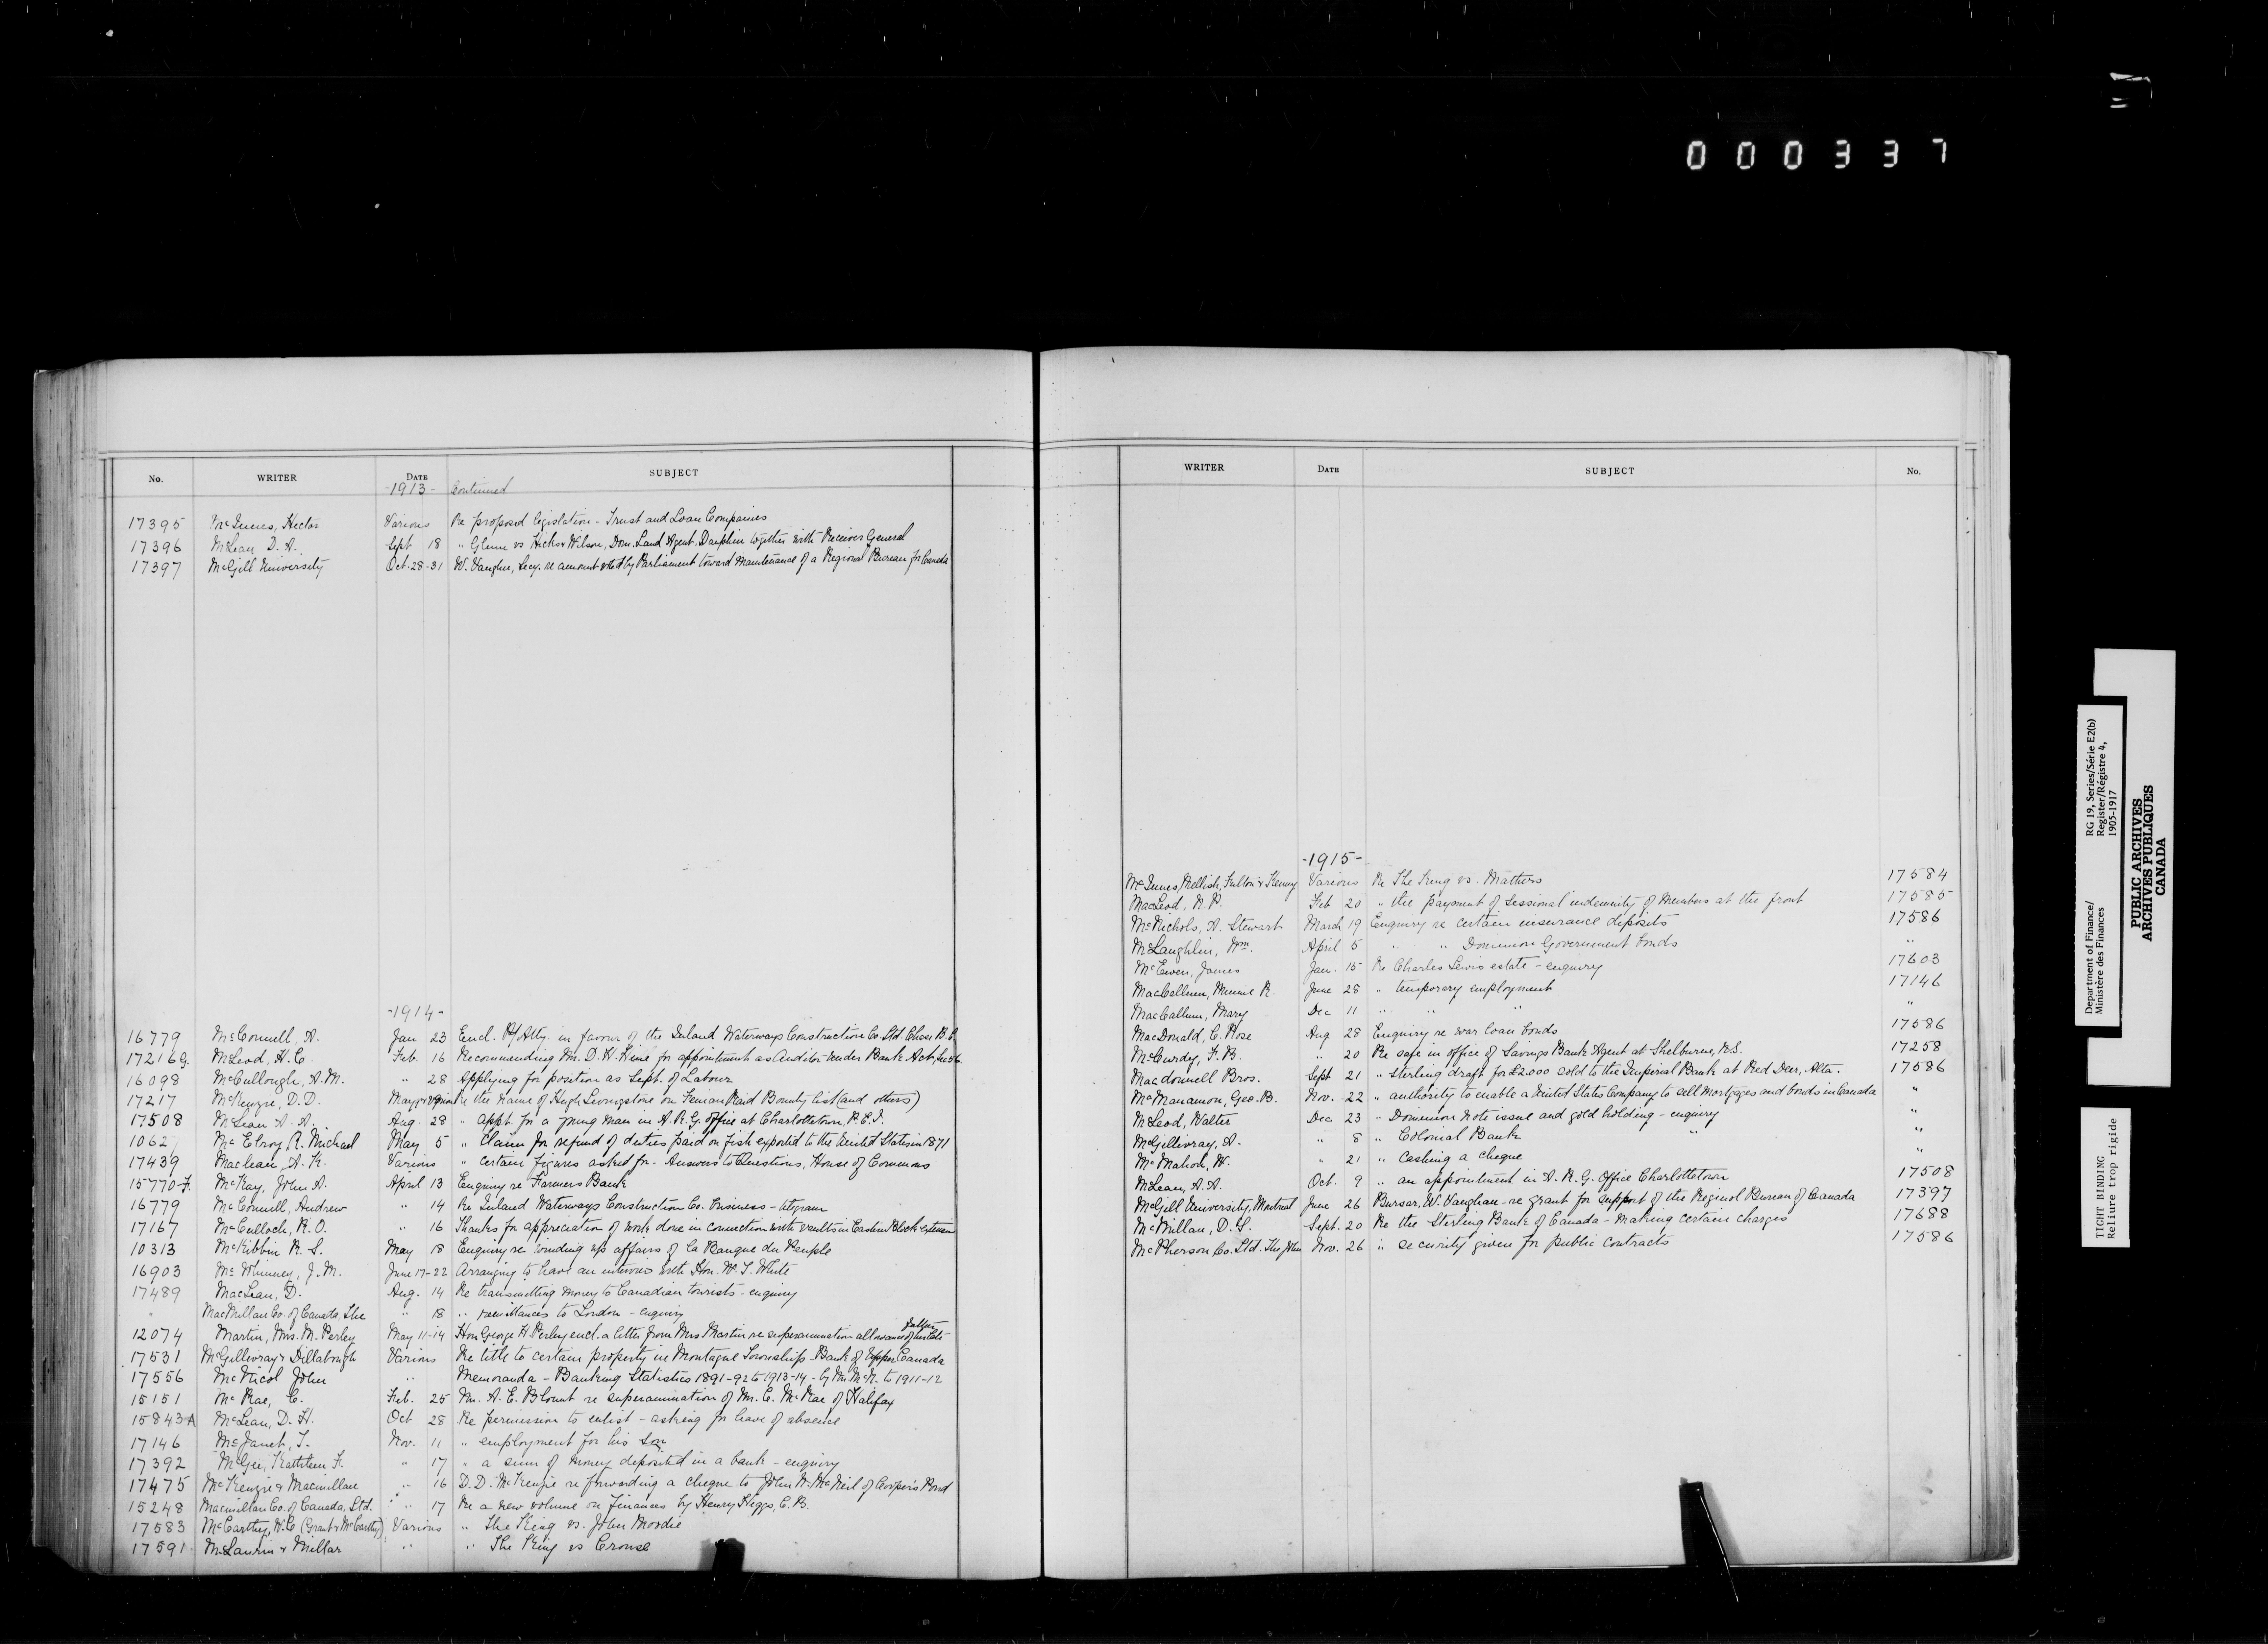 000337
No. WRITER DATE SUBJECT
-1913- Continued
17395 McInnes, Hector Various Re proposed legislation - Trust and Loan Companies
17396 McLean D. A. Sept 18 " Glenn vs Hicks & Wilson, Dom. Land Agent, Dauphin together with Receiver General
17397 McGill University Oct. 28-31 W. Vaughan, Secy. re amount voted by Parliament toward Maintenance of a Regional Bureau for Canada
-1914-
16779 McConnell, A. Jan 23 Encl. P/Atty. in favour of the Inland Waterways Construction Co. Ltd Chase B.C.
17216g. McLeod, H.C. Feb. 16 Recommending Mr. D. K. for appointment as Auditor under Bank Act, Sec 56.
16098 McCullough, A.M. " 28 Applying for position as Supt. of Labour
17217 McKenzie, D.D. May Re the name of Hugh Livingstone on Fenian Raid Bounty list (and others)
17508 McLean A. A. Aug. 28 " Appt. for a young man in A. R. G. office at Charlottetown, P.E.I.
1062 McElroy, R. Michael May 5 " Claim for refund of duties paid on fish exported to the United States in 1871
17439 Maclean, A. K. Various " certain figures asked for - Answers to Questions, House of Commons
15770-F. McKay, John A. April 13 Enquiry re Farmers Bank
16779 McConnell, Andrew " 14 Re Inland Waterways Construction Co. business - telegram
17167 McCulloch, R.O. " 16 Thanks for appreciation of work done in connection with vaults in Eastern Block extension
10313 McKibbin R. S. May 18 Enquiry re winding up affairs of La Banque du Peuple
16903 McWhinney, J.M. June 17-22 Arranging to have an interview with Hon. W. T. White
17489 MacLean, D. Aug. 14 Re transmitting money to Canadian tourists - enquiry
" MacMillan Co. of Canada, The " 18 " remittances to London - enquiry
12074 Martin, Mrs. M. Perley May 11-14 Hon George H. Perley encl. a letter from Mrs Martin re superannuation allowance of father
17531 McGillivray & Dillabough Various Re title to certain property in Montague Township - Bank of Upper Canada
17556 McNicol John " Memoranda - Banking Statistics 1891-92 to 1913-14 - by Mr. McN. to 1911-12
15151 McRae, C. Feb. 25 Mr. A. E. Blount re superannuation of Mr. C. McRae of Halifax
15843-A McLean, D. H. Oct 28 Re permission to enlist - asking for leave of absence
17146 McJanet, T. Nov. 11 " employment for his son
17392 McGee, Kathleen F. " 17 " a sum of money deposited in a bank - enquiry
17475 McKenzie & Macmillan " 16 D.D. McKenzie re forwarding a cheque to John N. McNeil of Cooper's Pond
15248 Macmillan Co. of Canada, Ltd. " 17 Re a new volume on finances by Henry Higgs, C.B.
17583 McCarthy, W.C. (Grant & McCarthy) Various " The King vs. John Moodie
17591 McLaurin & Millar " " The King vs Crouse
WRITER DATE SUBJECT No.
-1915-
McInnes, Mellish, Fulton & Kenny Various Re The King vs. Mathers 17584
MacLeod, N. P. Feb 20 " the payment of sessional indemnity of Members at the front 17585
McNichols, A. Stewart March 19 Enquiry re certain insurance deposits 17586
McLaughlin, Wm. April 5 " " Dominion Government bonds "
McEwen, James Jan. 15 Re Charles Lewis estate - enquiry 17603
MacCallum, Minnie R. June 28 " temporary employment 17146
MacCallum, Mary Dec 11 " " " "
MacDonald, C. Rose Aug 28 Enquiry re war loan bonds 17586
McCurdy, F. B. " 20 Re safe in office of Savings Bank Agent at Shelburne, N.S. 17258
Macdonnell Bros. Sept 21 " sterling draft for £2.000 sold to the Imperial Bank at Red Deer, Alta. 17586
McManamon, Geo. B. Nov. 22 " authority to enable a United States Company to sell Mortgages and bonds in Canada "
McLeod, Walter Dec 23 " Dominion note issue and gold holding - enquiry "
McGillivray, A. " 8 " Colonial Bank " "
McMahon, W. " 21 " Cashing a cheque "
McLean, A. A. Oct. 9 " an appointment in A. R. G. Office Charlottetown 17508
McGill University, Montreal June 26 Bursar, W. Vaughan - re grant for support of the Reginol Bureau of Canada 17397
McMillan, D. S. Sept. 20 Re the Sterling Bank of Canada - Making certain charges 17688
McPherson Co. Ltd. The John Nov. 26 " security given for public contracts 17586
Department of Finance/
Ministère des Finances
RG 19, Series/Série E2(b)
Register/Régistre 4,
1905-1917
PUBLIC ARCHIVES
ARCHIVES PUBLIQUES
CANADA
TIGHT BINDING
Reliure trop rigide